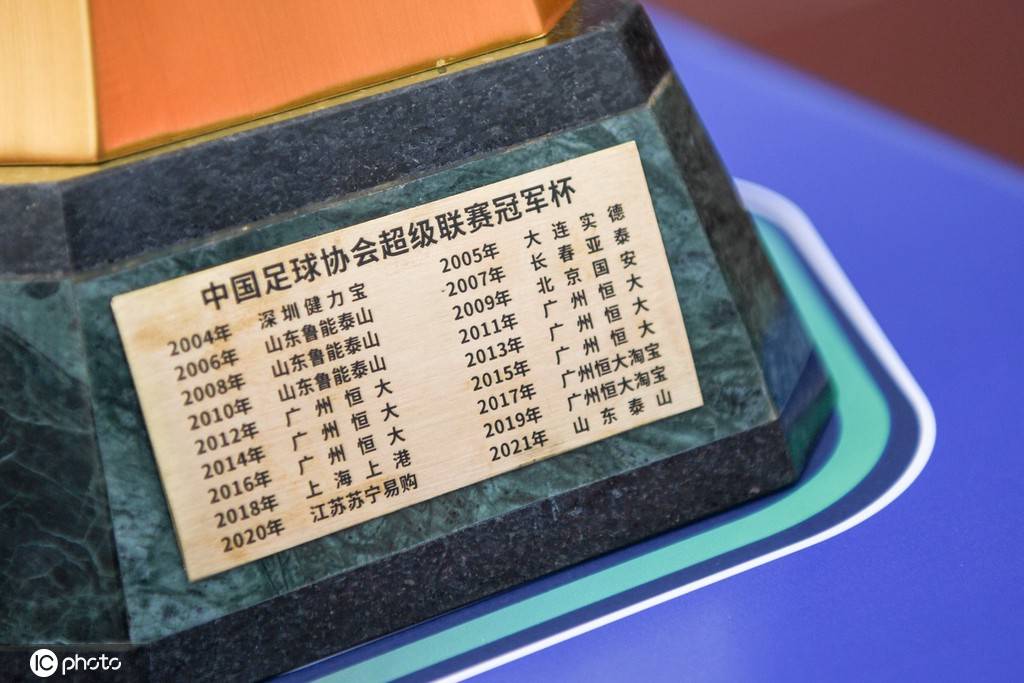 中国足球协会超级联赛冠军杯
2004年 深圳健力宝
2006年 山东鲁能泰山
2008年 山东鲁能泰山
2010年 山东鲁能泰山
2012年 广州恒大
2014年 广州恒大
2016年 广州恒大
2018年 上海上港
2020年 江苏苏宁易购
2005年 大连实德
2007年 长春亚泰
2009年 北京国安
2011年 广州恒大
2013年 广州恒大
2015年 广州恒大
2017年 广州恒大淘宝
2019年 广州恒大淘宝
2021年 山东泰山
IC photo